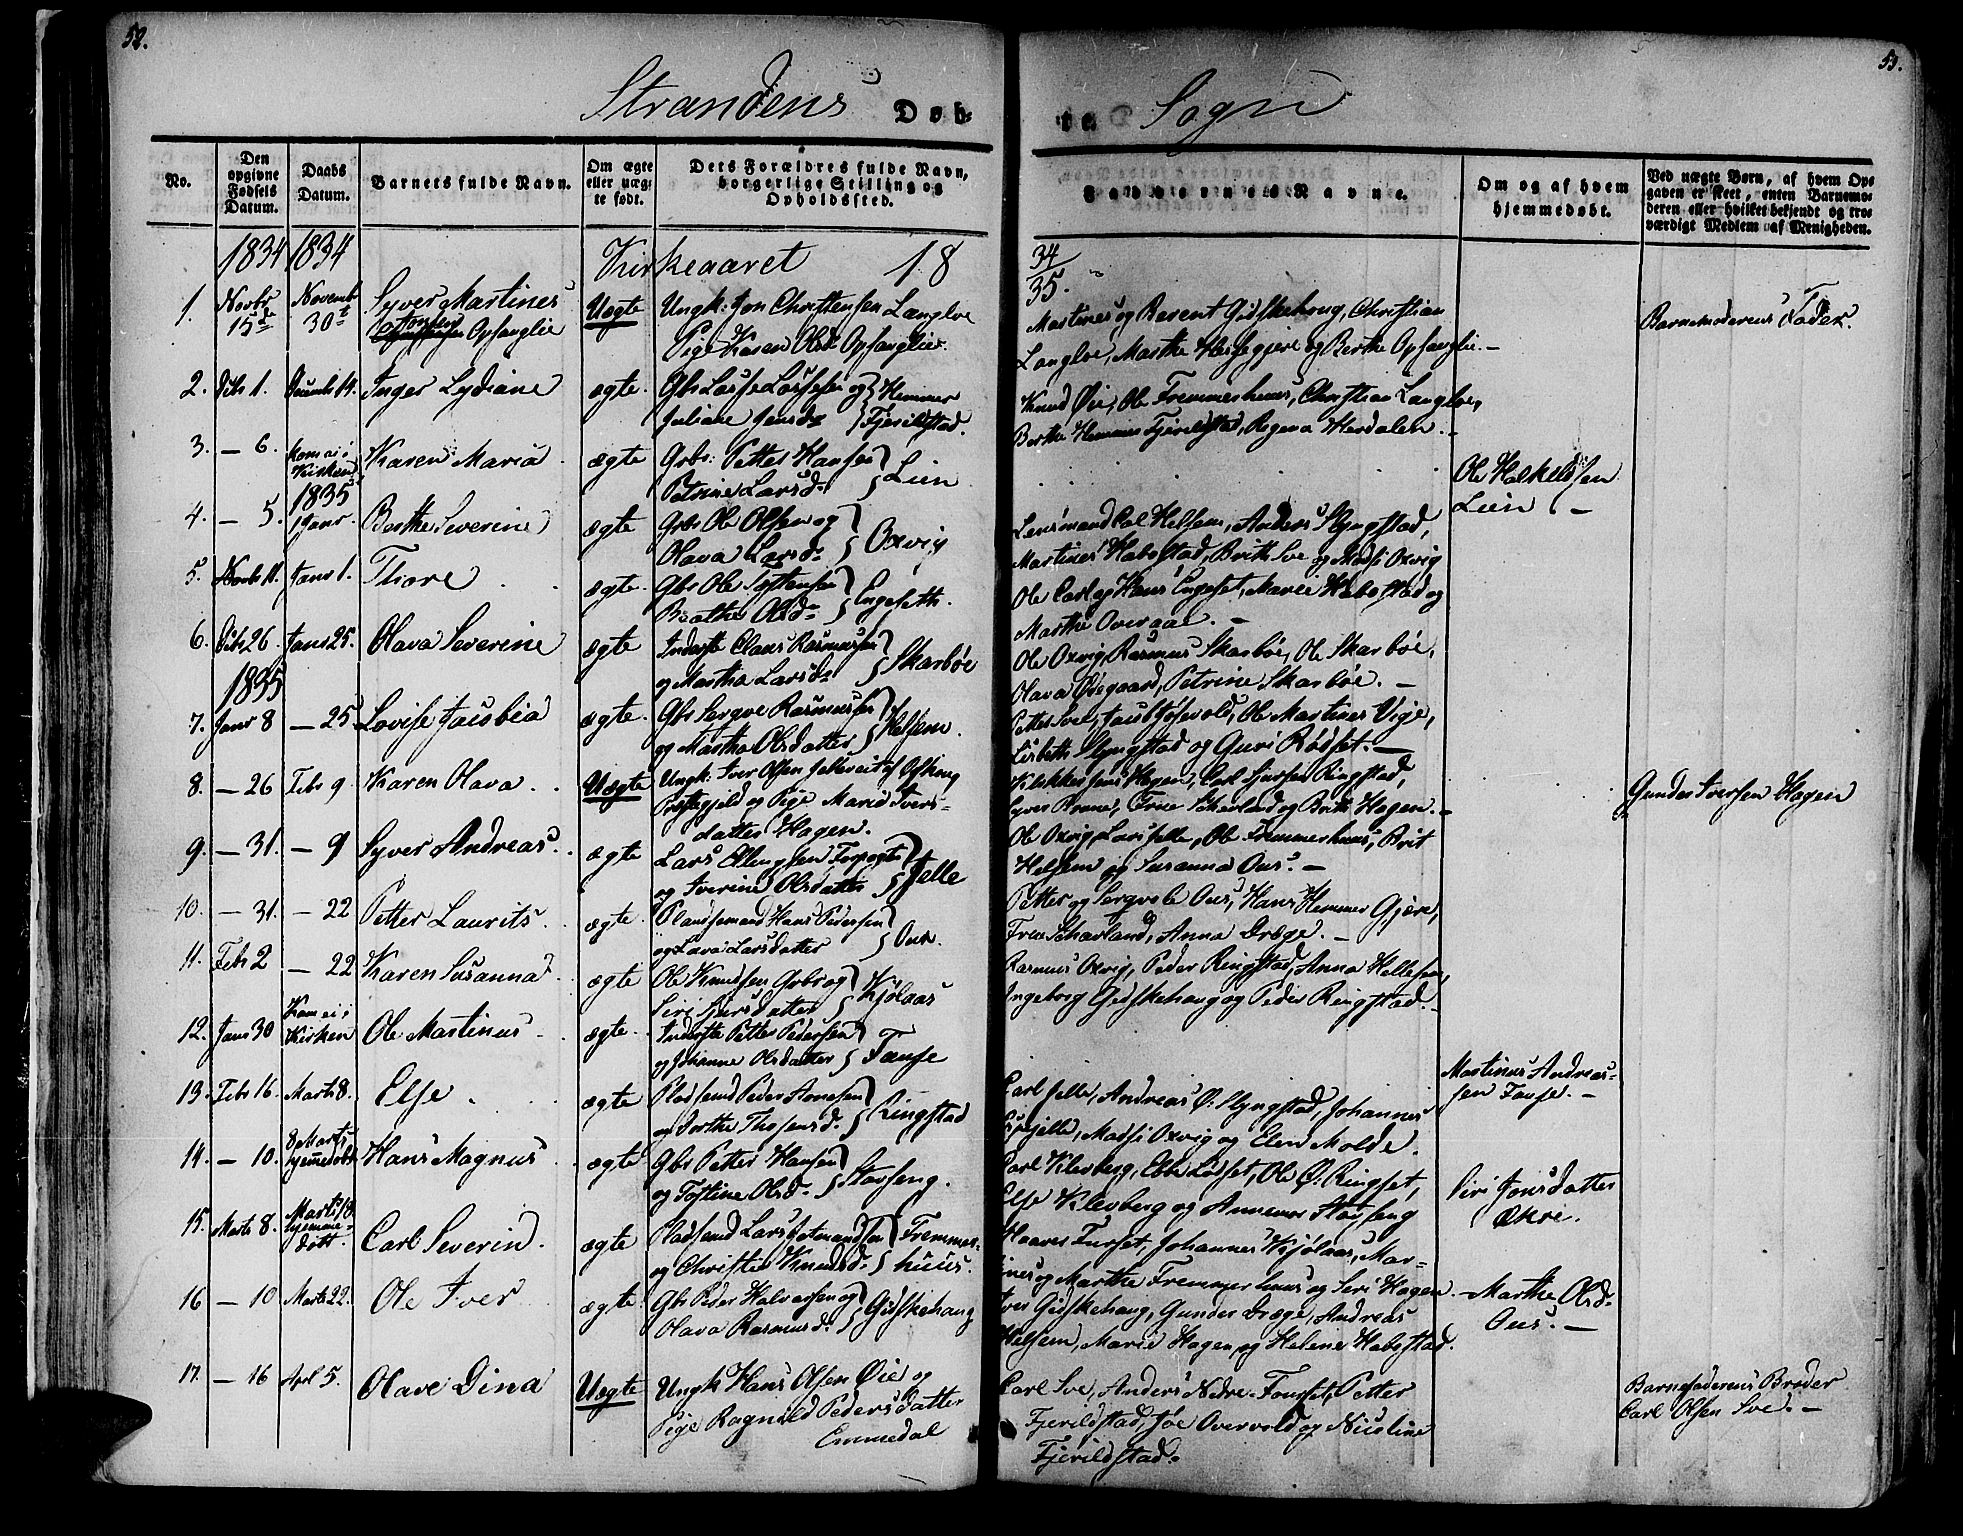 52.
53.
Strandens Døb-
te Sogn
No.
Den opgivne Fødsels Datum.
Daabs Datum.
Barnets fulde Navn.
Om ægte eller uæg-te født.
Dets Forældres fulde Navn, borgerlige Stilling og Opholdssted.
Faddernes Navne.
Om og af hvem hjemmedøbt.
Ved uægte Børn, af hvem Op-gaven er skeet, enten Barnemo-deren eller hvilket bekjendt og tro-værdigt Medlem af Menigheden.
1834 1834 Kirkeaaret 18 34/35.
1. Novbr 15de Novemb 30t Syver Martines Opsanglie Uægte Ungk: Jon Christensen Langloe
Pige Karen Olsd Opsanglie
Martines og Berent Gidskehoug, Christian
Langloe, Marthe Hessegjere og Berthe Opsanglie.-
Barnemoderens Fader.
2. Debr 1. Decemb 14. Inger Lydiane ægte. Gbr Lasse Lassesen og Hemmer
Juliane Jensdr Fjerildstad.
Knud Øie, Ole Fremmerhuus, Christian Langloe,
Berthe Hemmer Fjerildstad, Regina Herdalen.-
3. - 6. Kom ei i Kirken Karen Maria ægte Grbr: Petter Hansen
Petrine Larsdr Lien
Ole Halkeldsen
Lien -
1835
4. - 5. 1 Janr. Berthe Severine ægte Grbr Ole Olsen og
Olava Larsdr Oxvig
Lensmand Carl Helsem, Anders Slyngstad,
Martines Habostad, Brith Sve og Madsi Oxvig
5. Novbr 11. Janr 1. Thore ægte Gbr Ole Tostensen
Berthe Olsdr Engeseth.
Ole Carl og Hans Engeset, Marie Habostad og
Marthe Overaae.-
6. Debr 26 Janr 25. Olava Severine ægte Inderste Claus Rasmussen
og Martha Larsdr Skarbøe
Ole Oxvig, Rasmus Skarbøe, Ole Skarbøe,
Olava Ødegaard, Petrine Skarbøe.-
1835
7. Janr 8 - 25 Lovise Jacobia ægte. Gbr Sergve Rasmussen
og Martha Olsdatter Helsem.
Petter Sve, Jacob Josevold, Ole Martines Vige,
Lisbeth Slyngstad og Guri Rødset.-
8. - 26 Febr 9. Karen Olava Uægte Ungk: Iver Olsen
Præstegjeld og Pige Marie Ivers-
datter Hagen.
Hagen, Carl Ringstad,
Syver Brune, og Brith Hagen.-
Gunder Iversen Hagen
9. - 31. - 9 Syver Andreas. ægte Lars Ellingsen Forpagter
og Iverine Olsdatter Jelle
Ole Oxvig, Lars Jelle, Ole Fremmerhuus, Brit
Helsem og Susanna Ous.-
10. - 31. - 22 Petter Laurits. ægte. Pladsemand Hans Pedersen
og Lava Larsdatter Ous.
Petter og Sergvele Ous, Hans Hemmer Gjære,
Frue Schavland, Anna Dræge.-
11. Febr 2 - 22 Karen Susanna ægte Ole Knudsen Grbr og
Siri Sjursdatter Kjølaas
Rasmus Oxvig, Peder Ringstad, Anna Hellesem,
Ingeborg Gidskehaug og Peder Ringstad.-
12. Janr 30 Kom ei i Kirken Ole Martinus ægte. Inderste Petter Pedersen
og Johanne Olsdatter Fause
Martinus Andreas-
sen Fause.-
13. Febr 16. Marts 8. Else ægte Pladsemd Peder Aanesen
og Dorthe Thosensd. Ringstad
Carl Jelle, Andreas Ø: Slyngstad, Johannes
Jelle, Madsi Oxvig og Elen Molde.
14. - 10. 8 Marts hjemmedøbt Hans Magnus ægte Gbr Petter Hansen
og Tostine Olsdr Stavseng.
Carl Klevberg, Ebbe Lødset, Ole Ø: Ringset,
Else Klevberg og Annemor Stavseng
Siri Jonsdatter
Økre.
15. Marts 8. Marts 18 hjemme-døbt. Carl Severin ægte Pladsemd Lars Jetmundsen
og Christie Knudsdr Fremmer-
huus.
Haaver Furset, Johannes Kjølaas, Mar-
tines og Marthe Fremmerhuus og Siri Hagen.
-Marthe Olsdr
Ous.-
16 - 10 Marts 22. Ole Iver ægte. Gbr Peder Halvorsen og
Olava Rasmusdr Gidskehaug
Iver Gidskehaug, Gunder Dræge, Andreas
Helsem, Marie Hagen, og Helene Habostad.
17. - 16 April 5. Olave Dina Uægte Ungk Hans Olsen Øie og
Pige Ragnild Pedersdatter
Emmedal
Carl Sve, Anders Nedre-Fouset, Petter
Fjerildstad, Joe Overvold og Nicoline
Fjerildstad.
Barnefaderens Broder
Carl Olsen Sve.-